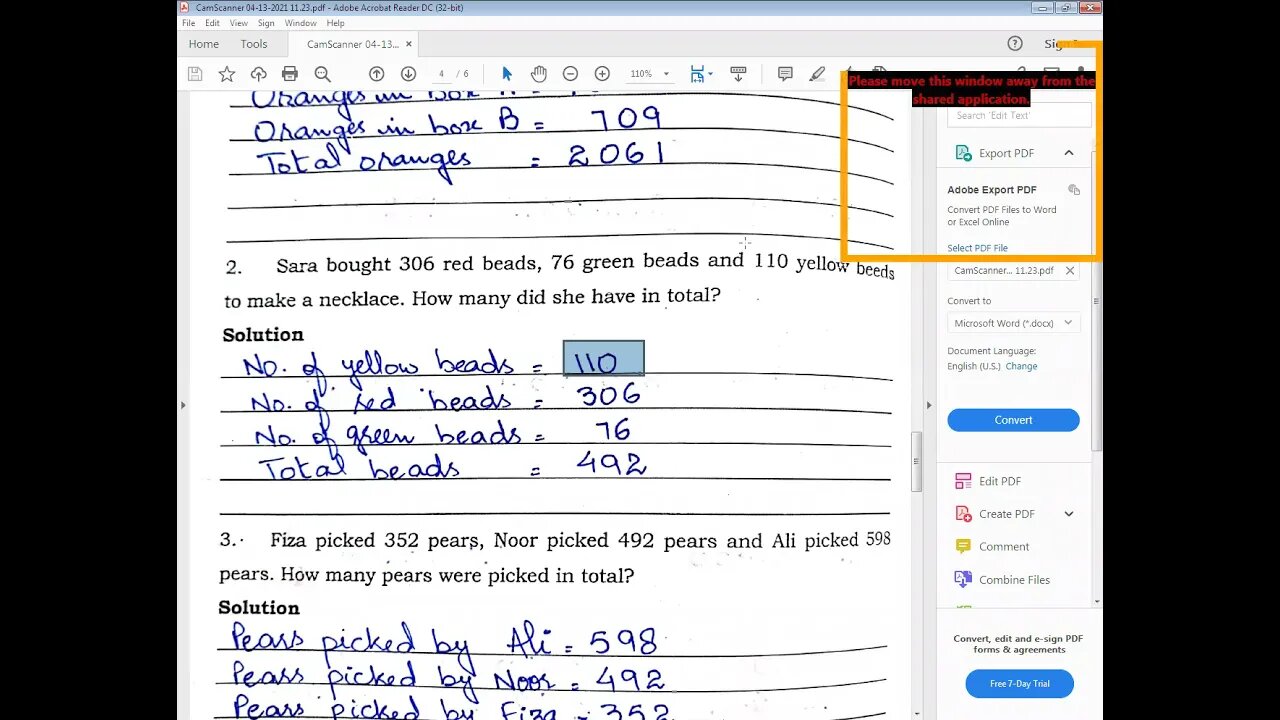 CamScanner 04-13-2021 11.23.pdf - Adobe Acrobat Reader DC (32-bit)
File Edit View Sign Window Help
Home Tools CamScanner 04-13... × Sign
4 / 6 110%
Please move this window away from the
shared application.
Oranges in box A =
Oranges in box B = 709
Total oranges = 2061
2. Sara bought 306 red beads, 76 green beads and 110 yellow beeds
to make a necklace. How many did she have in total?
Solution
No. of yellow beads = 110
No. of red beads = 306
No. of green beads = 76
Total beads = 492
3. Fiza picked 352 pears, Noor picked 492 pears and Ali picked 598
pears. How many pears were picked in total?
Solution
Pears picked by Ali = 598
Pears picked by Noor = 492
Pears picked by Fiza = 352
Search 'Edit Text'
Export PDF
Adobe Export PDF
Convert PDF Files to Word
or Excel Online
Select PDF File
CamScanner... 11.23.pdf ×
Convert to
Microsoft Word (*.docx)
Document Language:
English (U.S.) Change
Convert
Edit PDF
Create PDF
Comment
Combine Files
Convert, edit and e-sign PDF
forms & agreements
Free 7-Day Trial